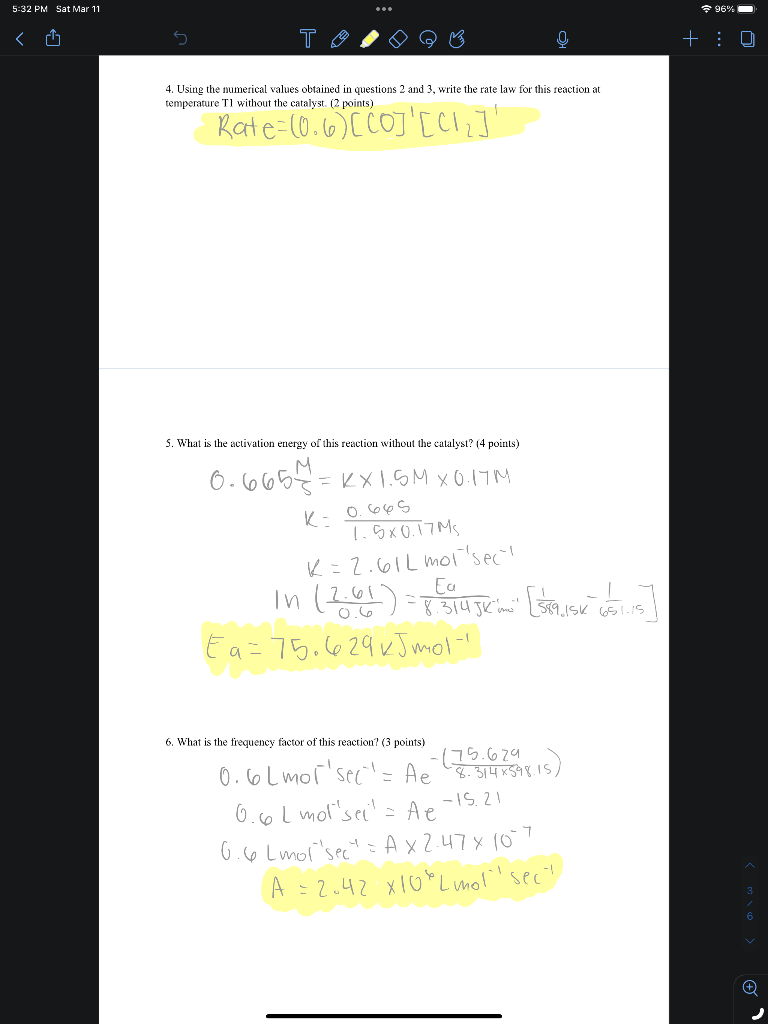 5:32 PM Sat Mar 11
96%
4. Using the numerical values obtained in questions 2 and 3, write the rate law for this reaction at
temperature T1 without the catalyst. (2 points)
Rate=(0.6)[CO]¹[Cl₂]¹
5. What is the activation energy of this reaction without the catalyst? (4 points)
0.665 M/S = K×1.5M×0.17M
K = 0.665 / 1.5×0.17Ms
K = 2.61L mol⁻¹sec⁻¹
ln (2.61/0.6) = Ea / 8.314JK⁻¹mol⁻¹ [1/589.15K - 1/651.15]
Ea = 75.629kJmol⁻¹
6. What is the frequency factor of this reaction? (3 points)
0.6Lmol⁻¹sec⁻¹ = Ae^-(75.629 / 8.314×598.15)
0.6 L mol⁻¹sec⁻¹ = Ae^-15.21
0.6 Lmol⁻¹sec⁻¹ = A×2.47×10⁻⁷
A = 2.42 ×10⁶Lmol⁻¹sec⁻¹
3
/
6